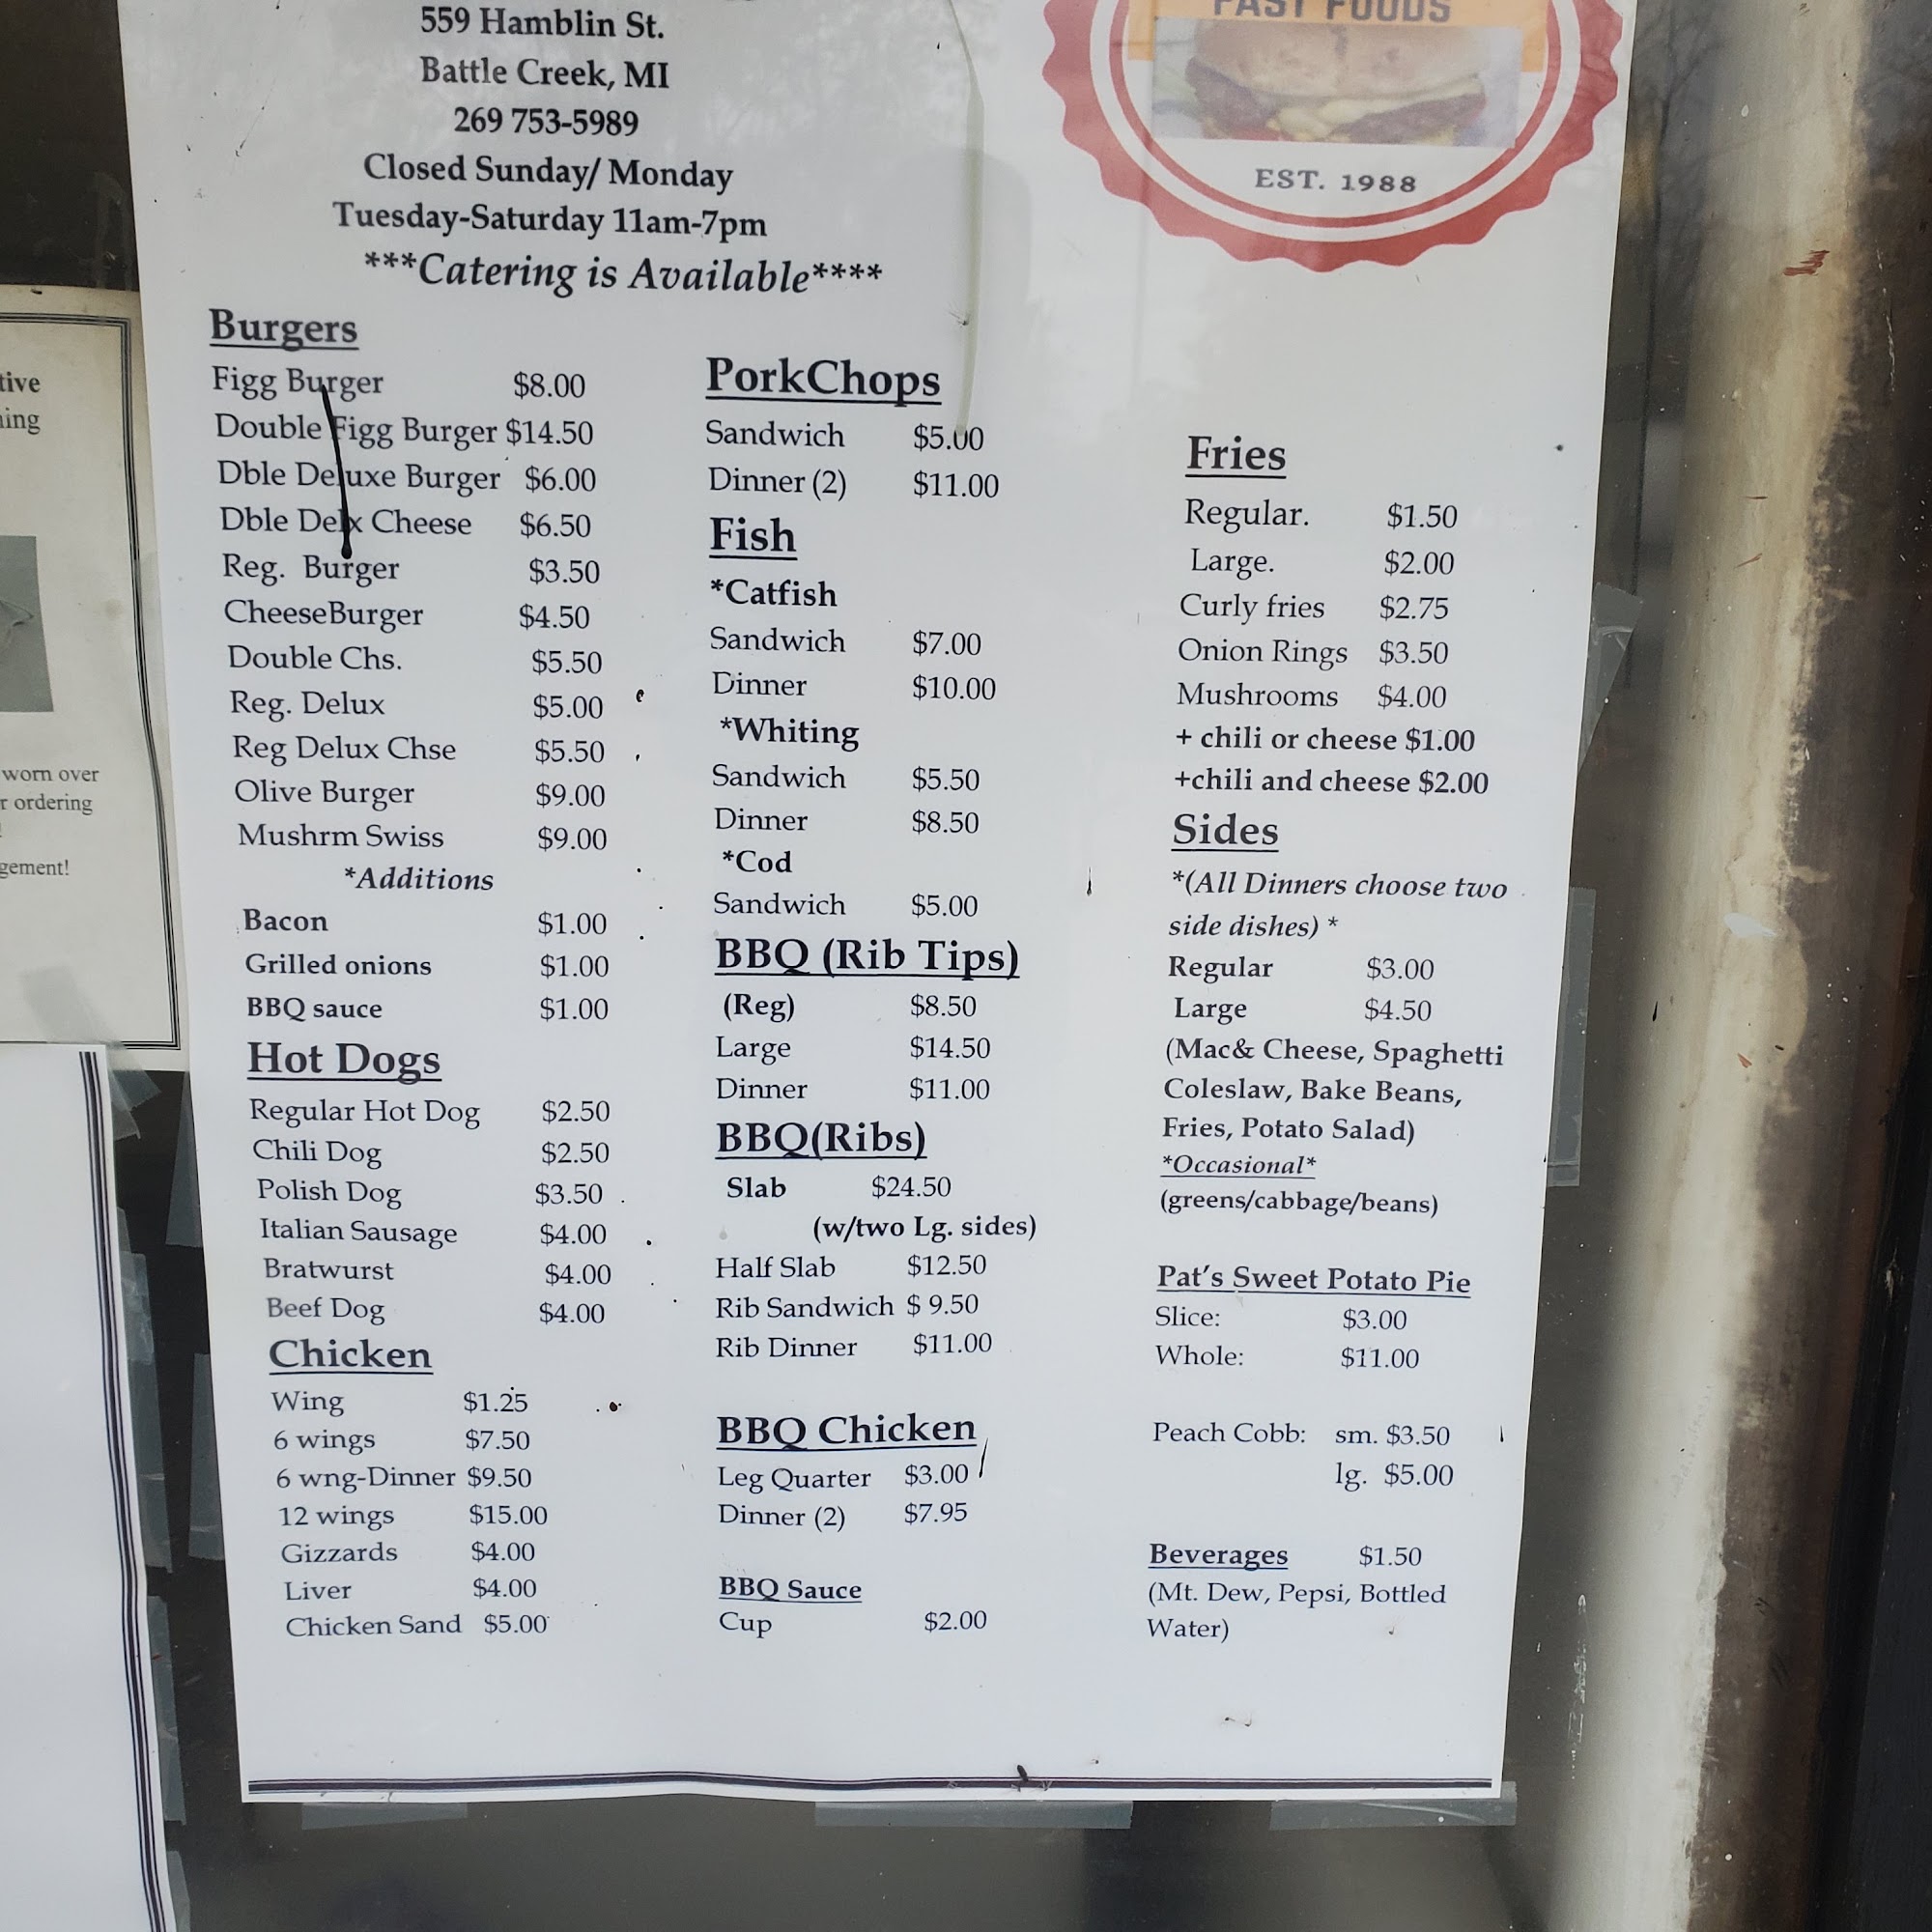 559 Hamblin St.
Battle Creek, MI
269 753-5989
Closed Sunday/ Monday
Tuesday-Saturday 11am-7pm
***Catering is Available****
FAST FOODS
EST. 1988
Burgers
Figg Burger $8.00
Double Figg Burger $14.50
Dble Deluxe Burger $6.00
Dble Delx Cheese $6.50
Reg. Burger $3.50
CheeseBurger $4.50
Double Chs. $5.50
Reg. Delux $5.00
Reg Delux Chse $5.50
Olive Burger $9.00
Mushrm Swiss $9.00
*Additions
Bacon $1.00
Grilled onions $1.00
BBQ sauce $1.00
Hot Dogs
Regular Hot Dog $2.50
Chili Dog $2.50
Polish Dog $3.50
Italian Sausage $4.00
Bratwurst $4.00
Beef Dog $4.00
Chicken
Wing $1.25
6 wings $7.50
6 wng-Dinner $9.50
12 wings $15.00
Gizzards $4.00
Liver $4.00
Chicken Sand $5.00
PorkChops
Sandwich $5.00
Dinner (2) $11.00
Fish
*Catfish
Sandwich $7.00
Dinner $10.00
*Whiting
Sandwich $5.50
Dinner $8.50
*Cod
Sandwich $5.00
BBQ (Rib Tips)
(Reg) $8.50
Large $14.50
Dinner $11.00
BBQ(Ribs)
Slab $24.50
(w/two Lg. sides)
Half Slab $12.50
Rib Sandwich $ 9.50
Rib Dinner $11.00
BBQ Chicken
Leg Quarter $3.00
Dinner (2) $7.95
BBQ Sauce
Cup $2.00
Fries
Regular. $1.50
Large. $2.00
Curly fries $2.75
Onion Rings $3.50
Mushrooms $4.00
+ chili or cheese $1.00
+chili and cheese $2.00
Sides
*(All Dinners choose two
side dishes) *
Regular $3.00
Large $4.50
(Mac& Cheese, Spaghetti
Coleslaw, Bake Beans,
Fries, Potato Salad)
*Occasional*
(greens/cabbage/beans)
Pat's Sweet Potato Pie
Slice: $3.00
Whole: $11.00
Peach Cobb: sm. $3.50
lg. $5.00
Beverages $1.50
(Mt. Dew, Pepsi, Bottled
Water)
worn over
ordering